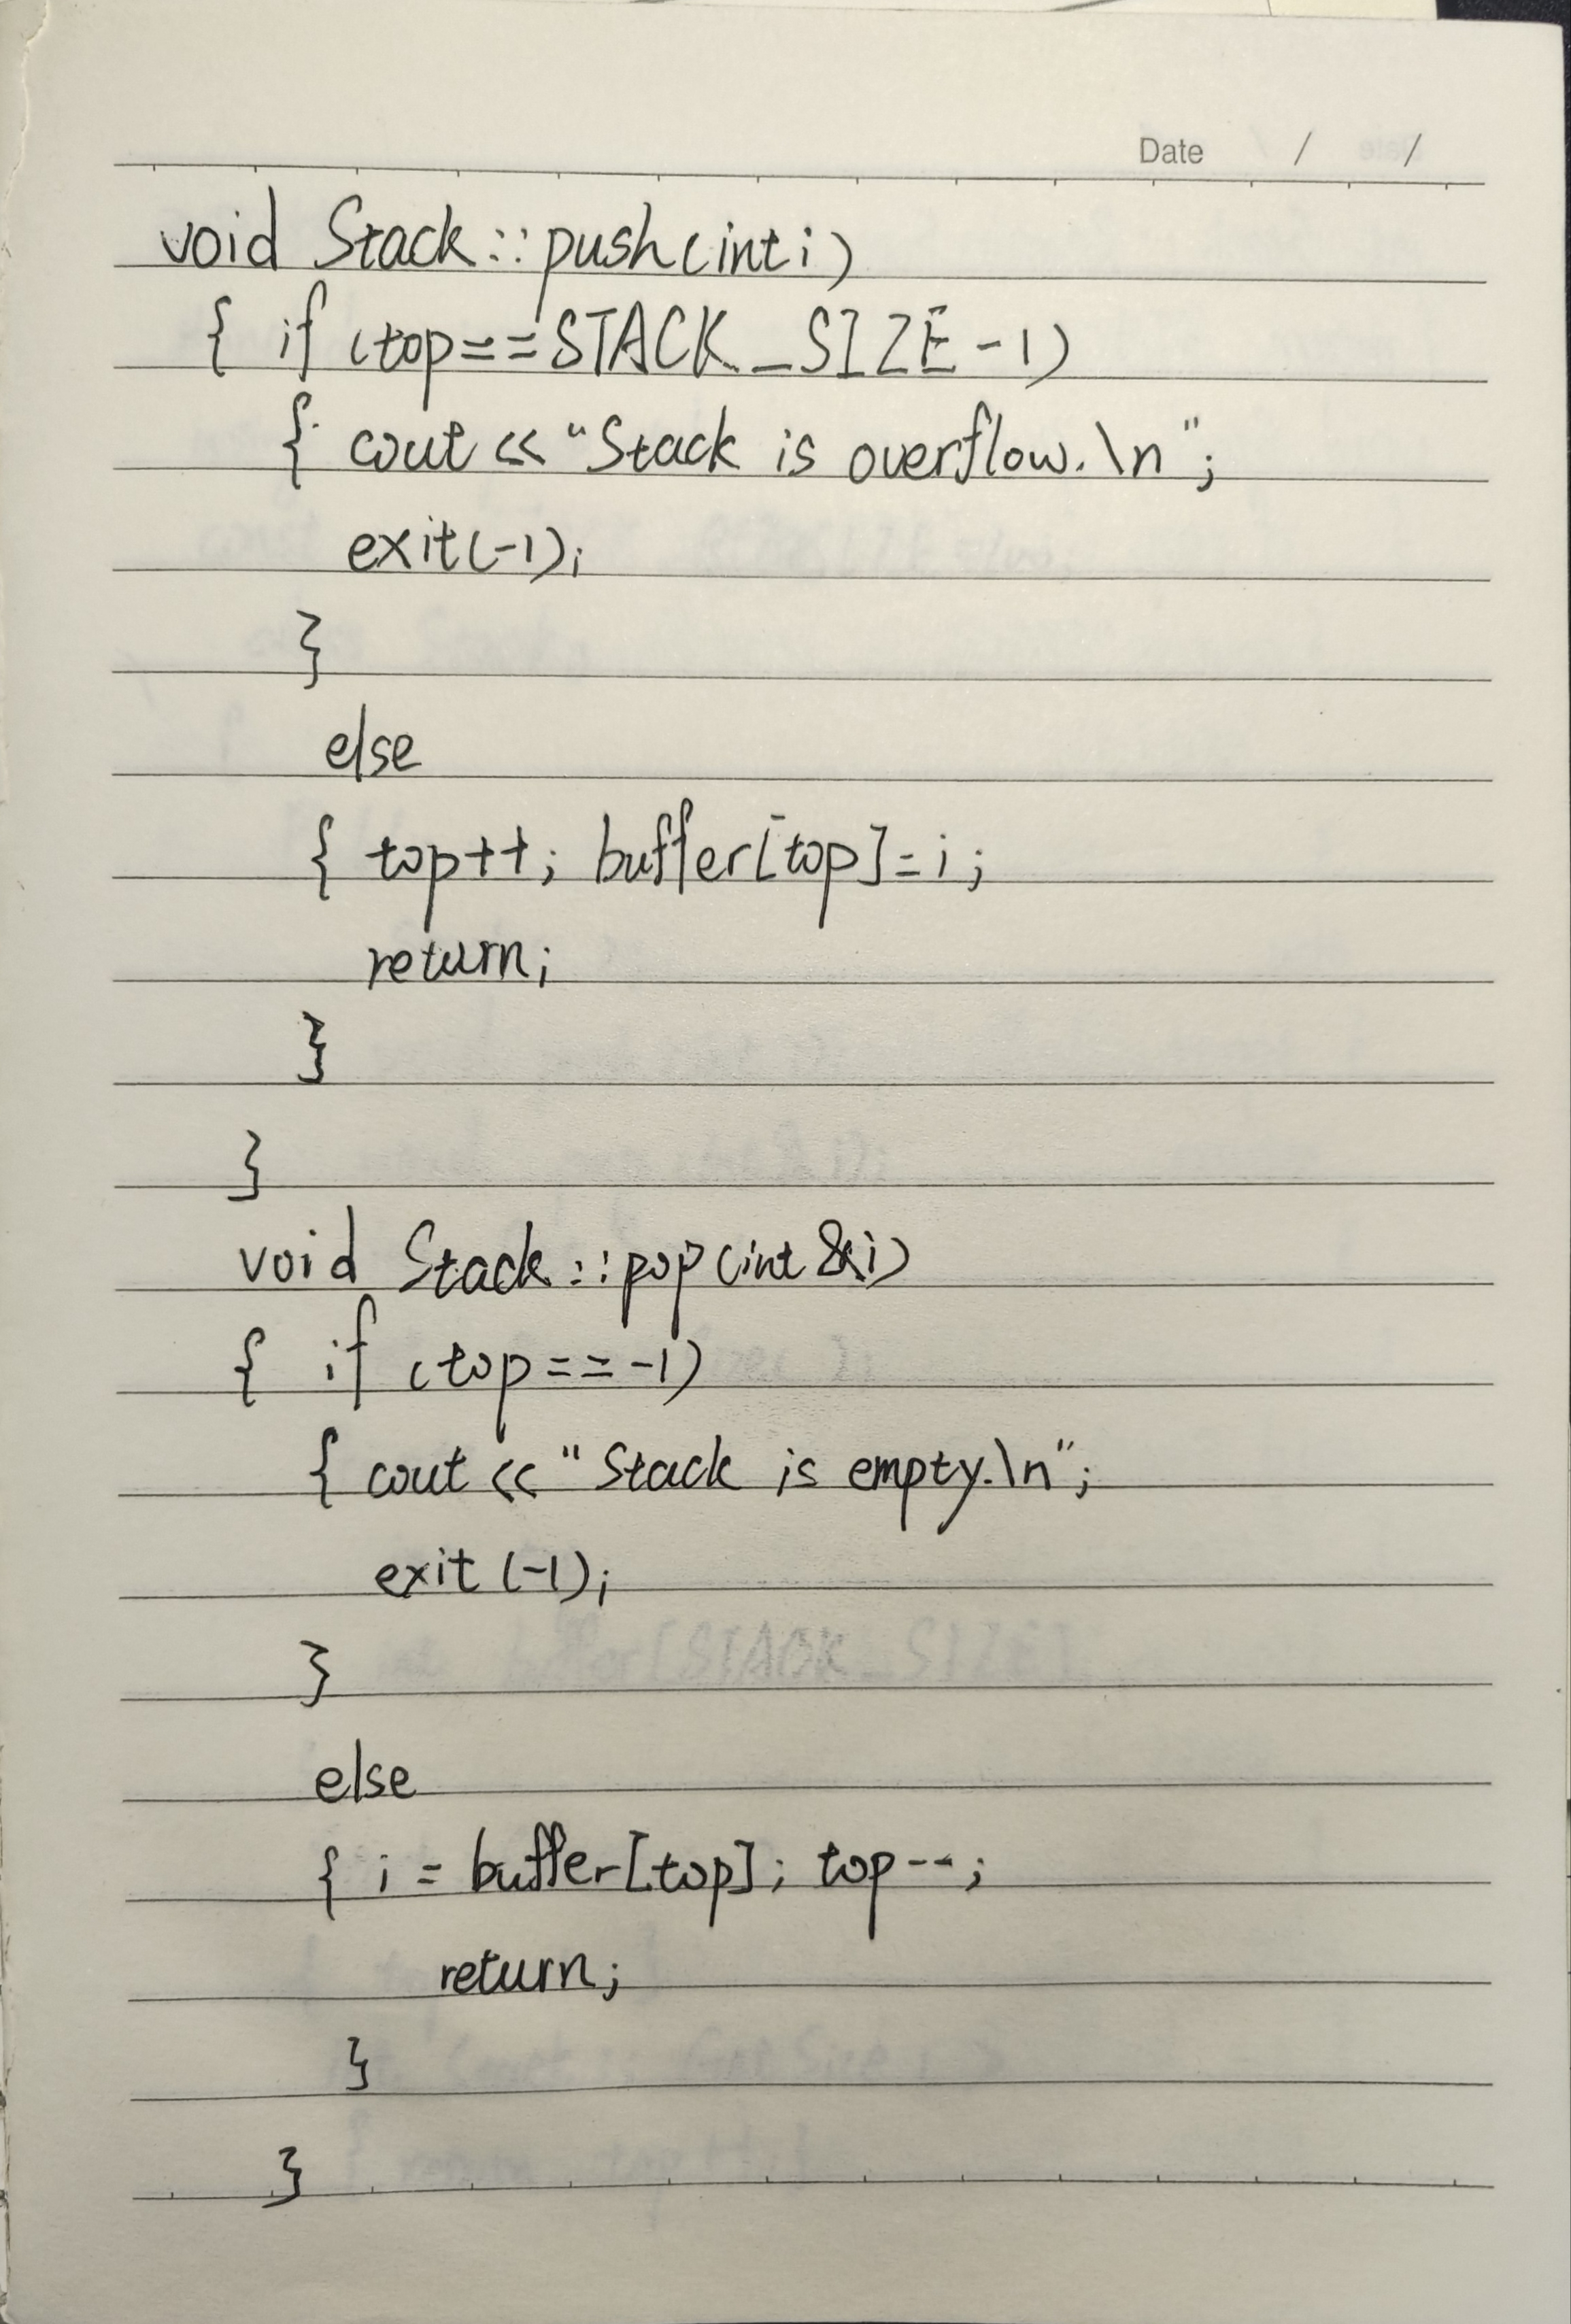 Date / /
void Stack::push(int i)
{ if (top==STACK_SIZE-1)
{ cout << "Stack is overflow.\n";
exit(-1);
}
else
{ top++; buffer[top]=i;
return;
}
}
void Stack::pop(int &i)
{ if (top==-1)
{ cout << "Stack is empty.\n";
exit (-1);
}
else
{ i = buffer[top]; top--;
return;
}
}